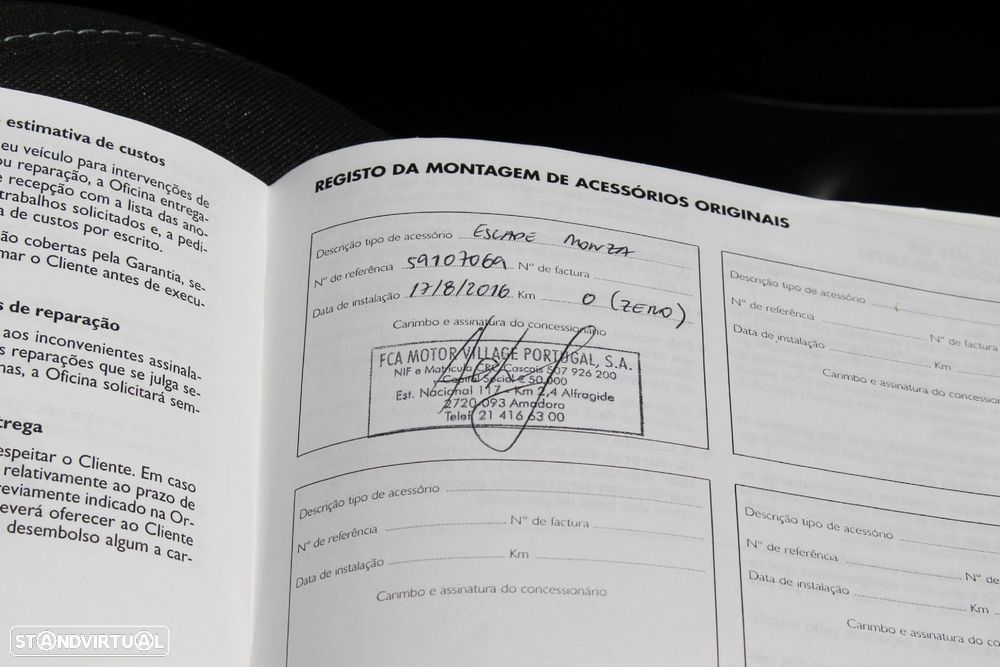 estimativa de custos
eu veículo para intervenções de
ou reparação, a Oficina entrega-
e recepção com a lista das ano-
trabalhos solicitados e, a pedi-
a de custos por escrito.
ão cobertas pela Garantia, se-
mar o Cliente antes de execu-
s de reparação
aos inconvenientes assinala-
s reparações que se julga se-
nas, a Oficina solicitará sem-
trega
espeitar o Cliente. Em caso
relativamente ao prazo de
reviamente indicado na Or-
everá oferecer ao Cliente
desembolso algum a car-
REGISTO DA MONTAGEM DE ACESSÓRIOS ORIGINAIS
Descrição tipo de acessório ESCAPE MONZA
N° de referência 59107069 N° de factura
Data de instalação 17/8/2016 Km 0 (ZERO)
Carimbo e assinatura do concessionário
FCA MOTOR VILLAGE PORTUGAL, S.A.
NIF e Matrícula CRC Cascais 507 926 200
Capital Social € 50.000
Est. Nacional 117 - Km 2,4 Alfragide
2720-093 Amadora
Telef. 21 416 63 00
Descrição tipo de acessório
N° de referência
N° de factura
Data de instalação
Km
Carimbo e assinatura do concessionário
Descrição tipo de acessório
N° de referência N° de factura
Data de instalação Km
Carimbo e assinatura do concessionário
Descrição tipo de acessório
N° de referência
N° de
Data de instalação
Km
Carimbo e assinatura do co
STANDVIRTUAL